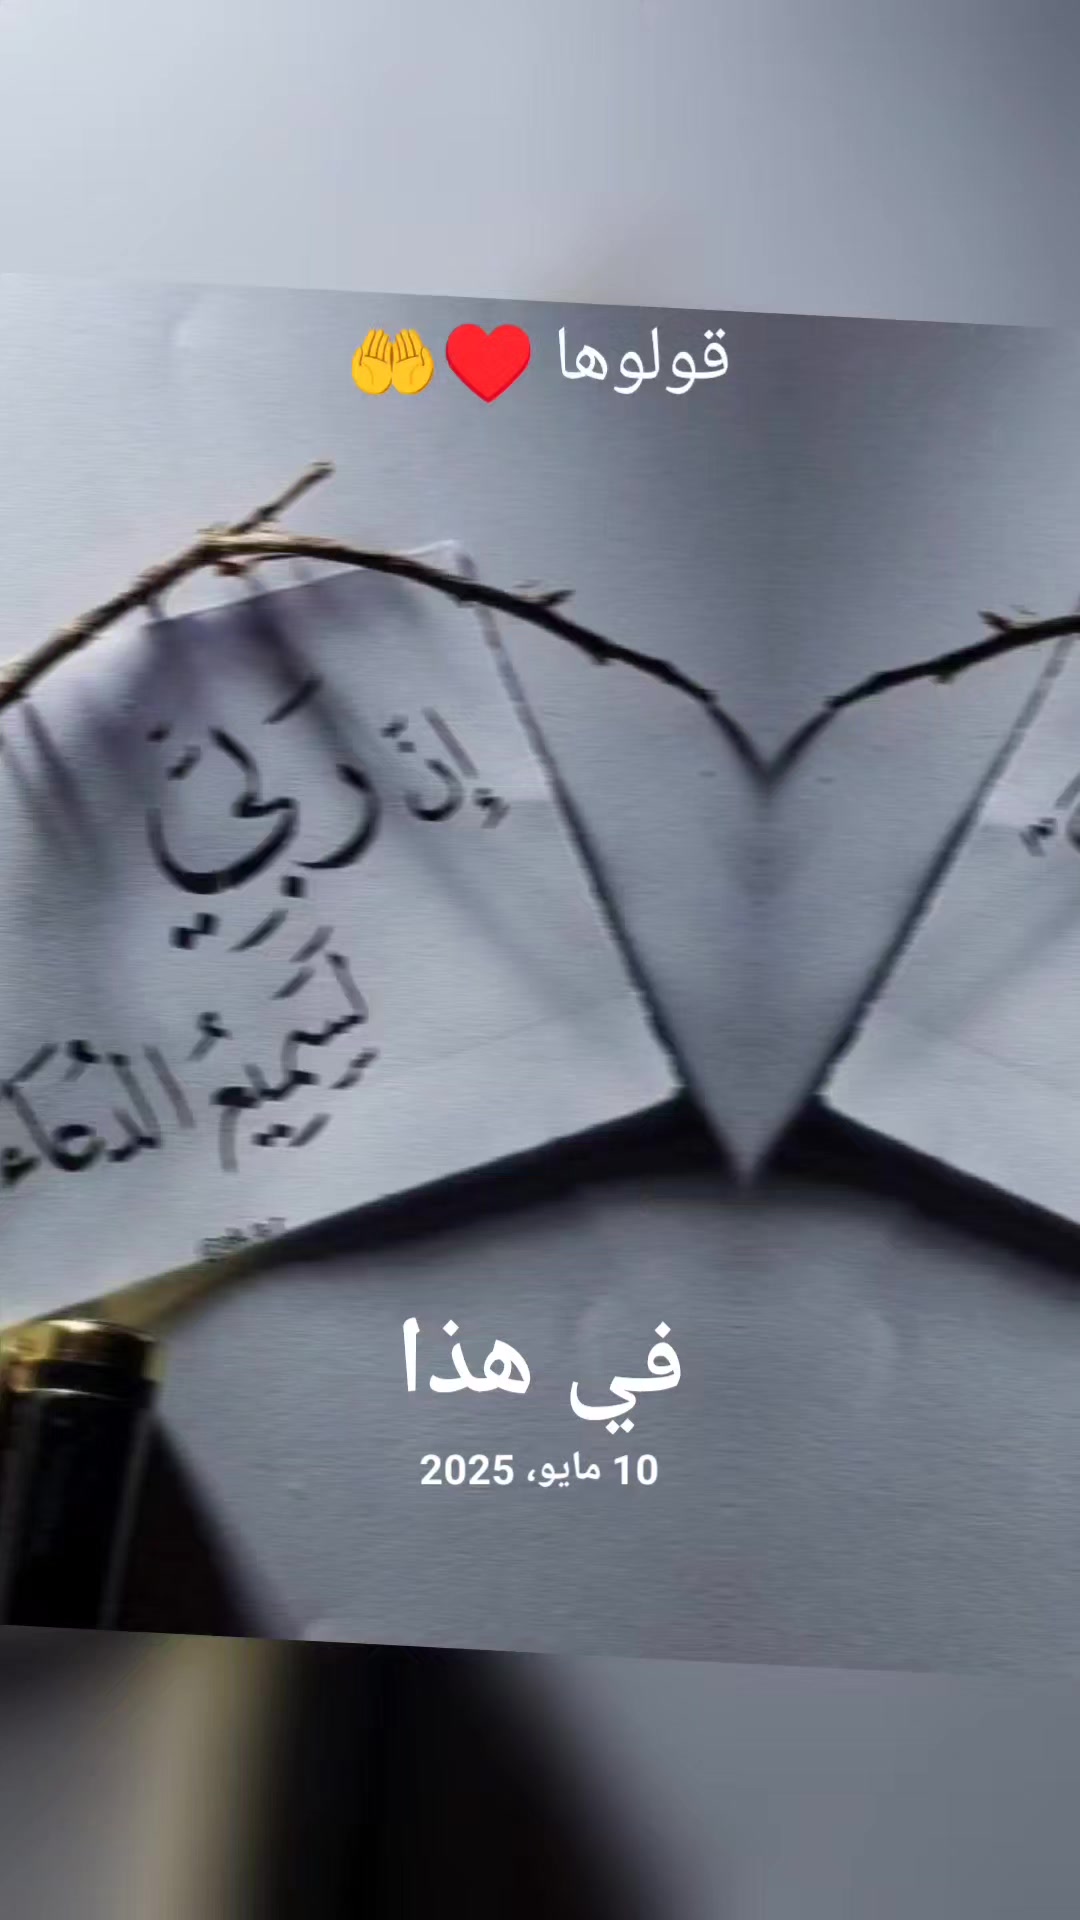 قولوها ♥️🤲
إِنَّ رَبِّيَ
لَسَمِيعُ الدُّعَاءِ
في هذا
10 مايو، 2025